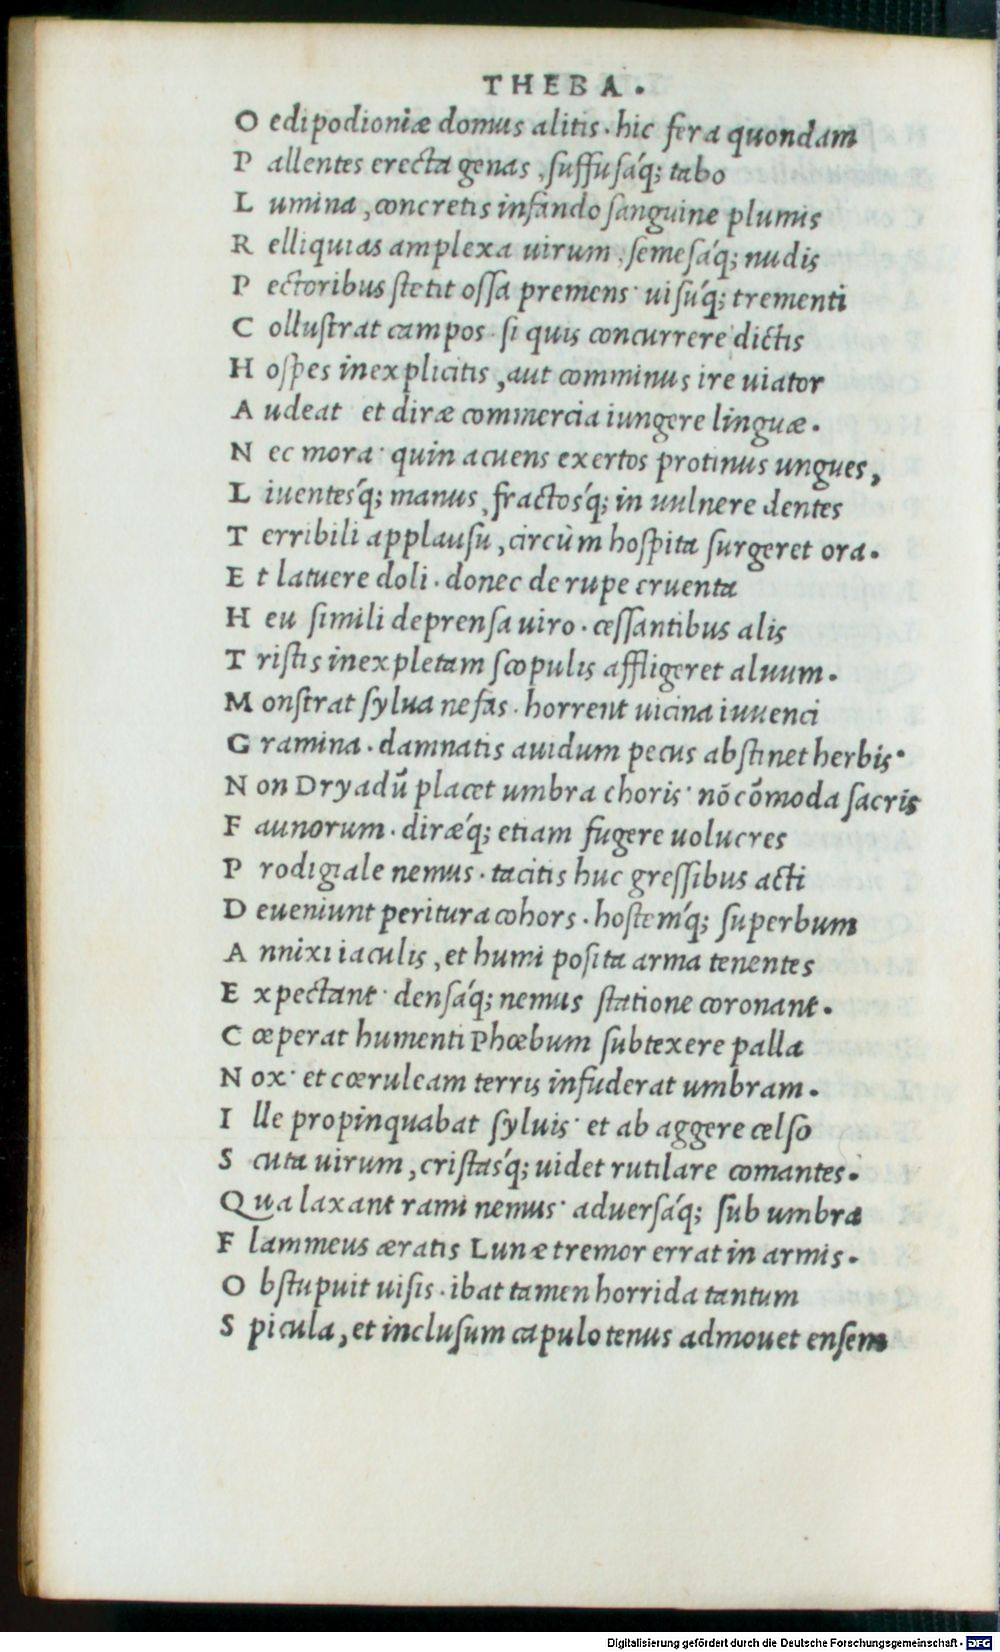 THEBA.
O edipodioniæ domus alitis. hic fera quondam
P allentes erecta genas, suffusáq; tabo
L umina, concretis infando sanguine plumis
R elliquias amplexa uirum, semesáq; nudis
P ectoribus stetit ossa premens· uisúq; trementi
C ollustrat campos. si quis concurrere dictis
H ospes inexplicitis, aut comminus ire uiator
A udeat et diræ commercia iungere linguæ.
N ec mora· quin acuens exertos protinus ungues,
L iuentesq́; manus, fractosq́; in uulnere dentes
T erribili applausu, circùm hospita surgeret ora.
E t latuere doli. donec de rupe cruenta
H eu simili deprensa uiro. cessantibus alis
T ristis inexpletam scopulis affligeret aluum.
M onstrat sylua nefas. horrent uicina iuuenci
G ramina. damnatis auidum pecus abstinet herbis·
N on Dryadũ placet umbra choris· nõ cõmoda sacris
F aunorum. diræq́; etiam fugere uolucres
P rodigiale nemus. tacitis huc gressibus acti
D eueniunt peritura cohors. hostemq́; superbum
A nnixi iaculis, et humi posita arma tenentes
E xpectant· densáq; nemus statione coronant.
C œperat humenti Phœbum subtexere palla
N ox· et cœruleam terris infuderat umbram.
I lle propinquabat syluis· et ab aggere celso
S cuta uirum, cristasq́; uidet rutilare comantes.
Q ua laxant rami nemus· aduersáq; sub umbra
F lammeus æratis Lunæ tremor errat in armis.
O bstupuit uisis. ibat tamen horrida tantum
S picula, et inclusum capulo tenus admouet ensem
Digitalisierung gefördert durch die Deutsche Forschungsgemeinschaft - DFG